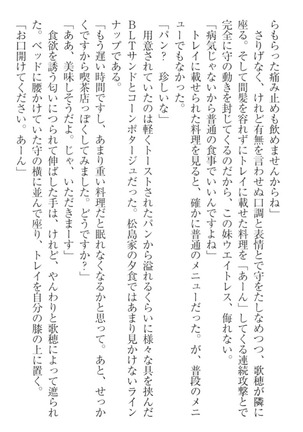 らもらった痛み止めも飲めませんからね」
　さりげなく、けれど有無を言わせぬ口調と表情とで守をたしなめつつ、歌穂が隣に
座る。そして間髪を容れずにトレイに載せた料理を「あーん」してくる連続攻撃とで
完全に守の動きを封じてくるのだから、この妹ウエイトレス、侮れない。
「病気じゃないから普通の食事でいいんですよね」
　トレイに載せられた料理を見ると、確かに普通のメニューだった。が、普段のメニ
ューでもなかった。
「パン？　珍しいな」
　用意されていたのは軽くトーストされたパンから溢れるくらいに様々な具を挟んだ
ＢＬＴサンドとコーンポタージュだった。松島家の夕食ではあまり見かけないライン
ナップである。
「もう遅い時間ですし、あまり重い料理だと眠れなくなるかと思って。あと、せっか
くですから喫茶店っぽくしてみました。どうですか？」
「ああ、美味しそうだよ。じゃ、いただきまーす」
　食欲を誘う匂いにつられて伸ばした手は、けれど、やんわりと歌穂によって遮られ
た。ベッドに腰かけていた守の横に並んで座り、トレイを自分の膝の上に置く。
「お口開けてください。あーん」